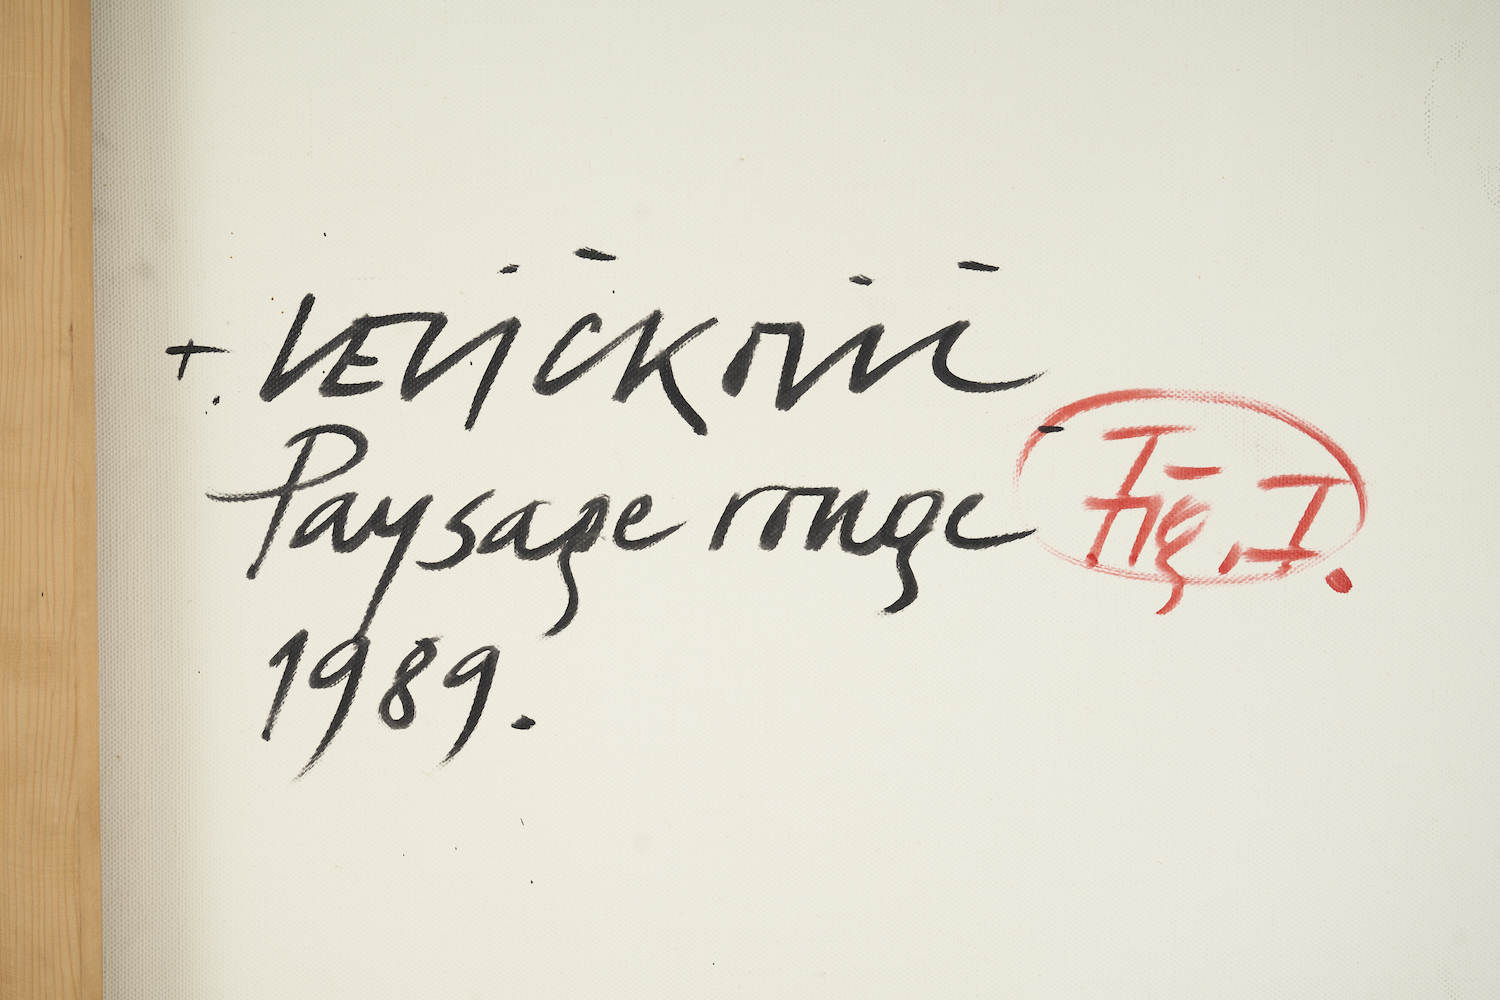 +. VEličković
Paysage rouge Fig. I.
1989.